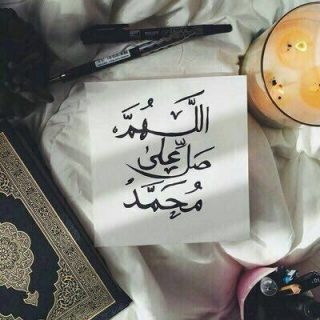 اللَّهُمَّ
صَلِّ عَلَىٰ
مُحَمَّدُ